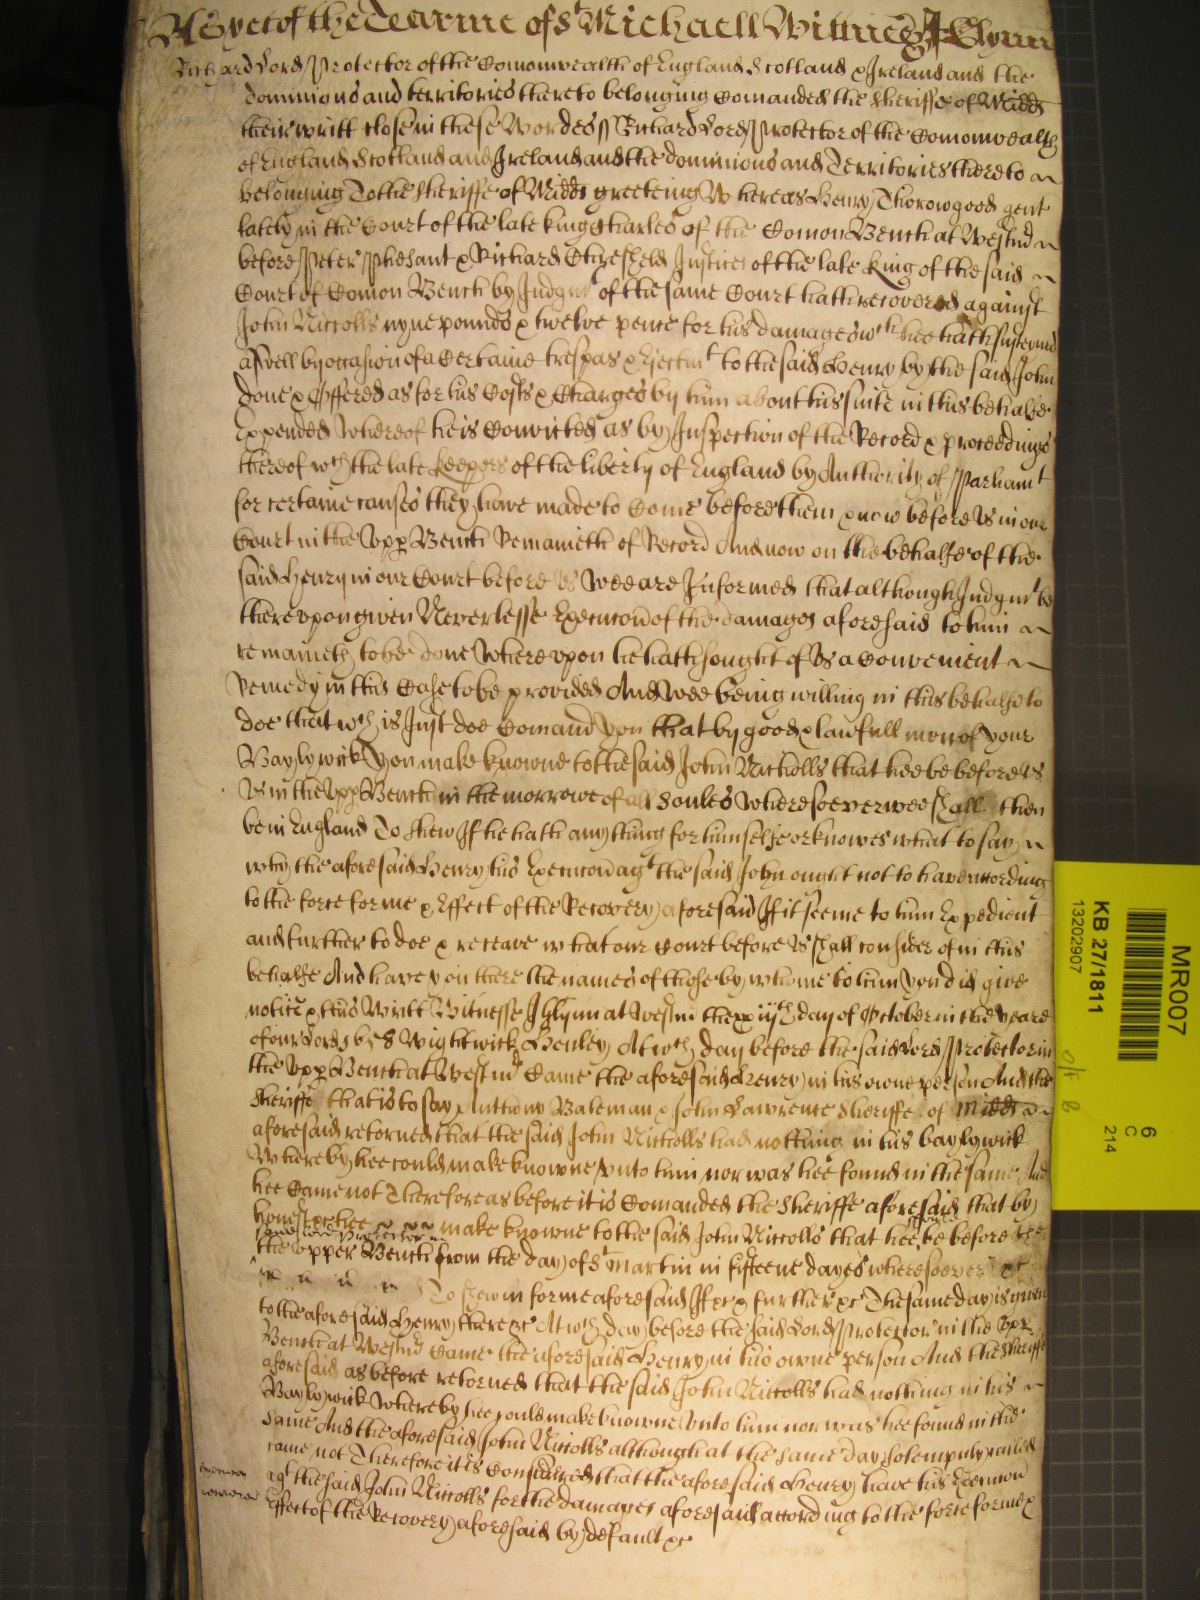 As yet of the Tearme of St Michaell Wittnes J Glynn
Richard Lord Protector of the Comonwealth of England Scotland & Ireland and the
dominions and territories thereto belonging Comanded the Sheriffe of Midds
theire writt close in these Wordes Richard Lord Protector of the Comonwealth
of England Scotland and Ireland and the dominions and Territories thereto
belonging To the Sheriffe of Midds greeteing Whereas Henry Thorowgood gent
lately in the Court of the late king Charles of the Comon Bench at Westmr
before Peter Phesant & Richard Cresheld Justices of the late King of the said
Court of Comon Bench by Judgmt of the same Court hath recovered against
John Niccolls nyne pounds & twelve pence for his damages wch hee hath susteyned
aswell by occasion of a Certaine trespas & Ejectmt to the said Henry by the said John
done & Offered as for his Costs & Charges by him about his suite in this behalfe
Expended Whereof he is Convicted as by Inspection of the Record & proceedings
thereof wch the late keepers of the liberty of England by Authority of Parliamt
for certaine causes they have made to Come before them & now before Us in our
Court in the Upp Bench Remaineth of Record And now on the behalfe of the
said Henry in our Court before Us Wee are Informed that although Judgmt be
thereupon given Neverlesse Execucon of the damages aforesaid to him
remaineth to be done Whereupon he hath sought of Us a Convenient
Remedy in this Case to be provided And Wee being willing in this behalfe to
doe that wch is Just doe Comand you that by good & lawfull men of your
Baylywick you make knowne to the said John Nicholls that hee be before Us
Us in the Upp Bench in the morrowe of all Soules Wheresoever wee shall then
be in England To shew If he hath any thing for himselfe or knowes what to say
why the aforesaid Henry his Execucon agt the said John ought not to have according
to the force forme & Effect of the Recovery aforesaid If it seeme to him Expedient
and further to doe & receave what our Court before Us shall consider of in this
behalfe And have you there the names of those by whome to him you did give
notice & this Writt Wittnesse J Glynn at Westmr the xxiijth day of October in the yeare
of our Lord 1658 Wightwick Henley At wch day before the said Lord Protector in
the Upp Bench at Westmr Came the aforesaid Henry in his owne person And the
Sheriffe that is to say Anthony Bateman & John Lawrence Sheriffe of Midds
aforesaid retorned that the said John Nicholls had nothing in his baylywick
Whereby hee could make knowne unto him nor was hee found in the same And
hee Came not Therefore as before it is Comanded the Sheriffe aforesaid that by
honest &c hee make knowne to the said John Niccolls that hee be before the
said Lord Protector in
the Upper Bench from the day of St Martin in fifteene dayes wheresoever &c
To shew in forme aforesaid If &c & further &c The same day is given
to the aforesaid Henry there &c At wch day before the said Lord Protector in the Upp
Bench at Westmr Came the aforesaid Henry in his owne person And the Sheriffe
aforesaid as before retorned that the said John Niccolls had nothing in his
Baylywick Whereby hee could make knowne Unto him nor was hee found in the
same And the aforesaid John Niccolls although at the same day Solempnly called
came not Therefore it is Considered that the aforesaid Henry have his Execucon
agt the said John Niccolls for the damages aforesaid according to the force forme &
Effect of the Recovery aforesaid by default &c
MR007
6
C
214
KB 27/1811
13202907